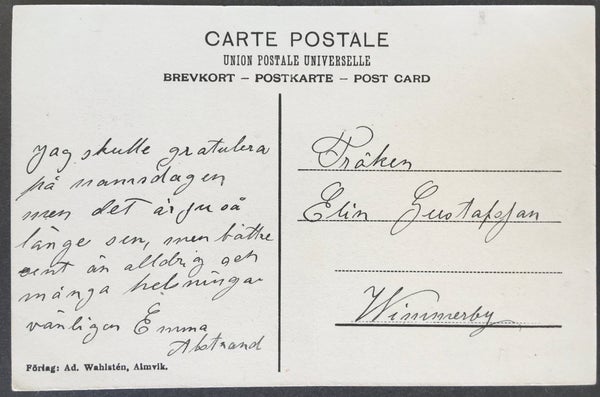 CARTE POSTALE
UNION POSTALE UNIVERSELLE
BREVKORT – POSTKARTE – POST CARD
Jag skulle gratulera
på namsdagen
men det är ju så
länge sen, men bättre
sent än alldrig och
många helsningar
vänligen Emma
Abstrand
Fröken
Elin Gustafsson
Wimmerby
Förlag: Ad. Wahlstén, Almvik.